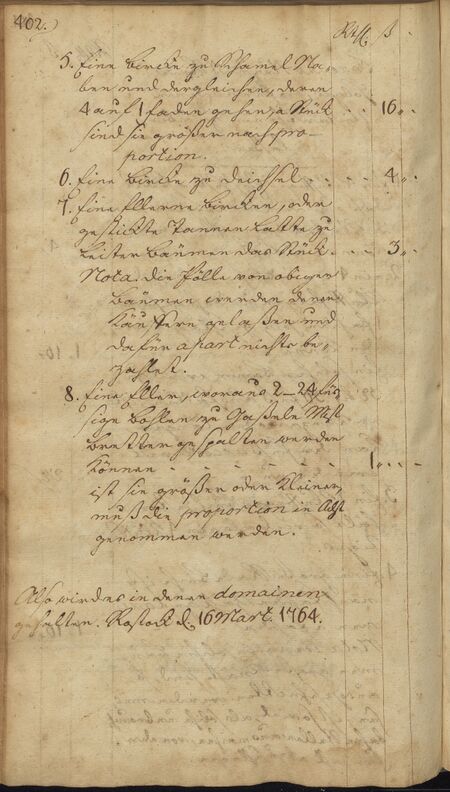 402.) Rthl. ß
5. Eine Bircke zu Schamel Na-
ben und dergleichen, deren
4 auf 1 faden gehen, a Stück . . 16 „ .
sind sie größer nach pro-
portion.
6. Eine Bircke zu Deichsel . . . . 4 „ .
7. Eine Ellerne Bircken, oder
Tannen Latte zu
Leiter Bäumen das Stück . . 3 „ .
Nota. die Pölle von obigen
Bäumen werden denen
Käuffern gelaßen und
dafür apart nichts be-
zahlet.
8. Eine Eller, woraus 2-24 füs
sige Bohlen zu Mist
bretter gespalten werden
Können - - - - - - 1 „ . .
ist sie größer oder Kleiner,
muß die proportion in Acht
genommen werden.
Also wird es in denen domainen
gehalten. Rostock d. 16 Mart. 1764.